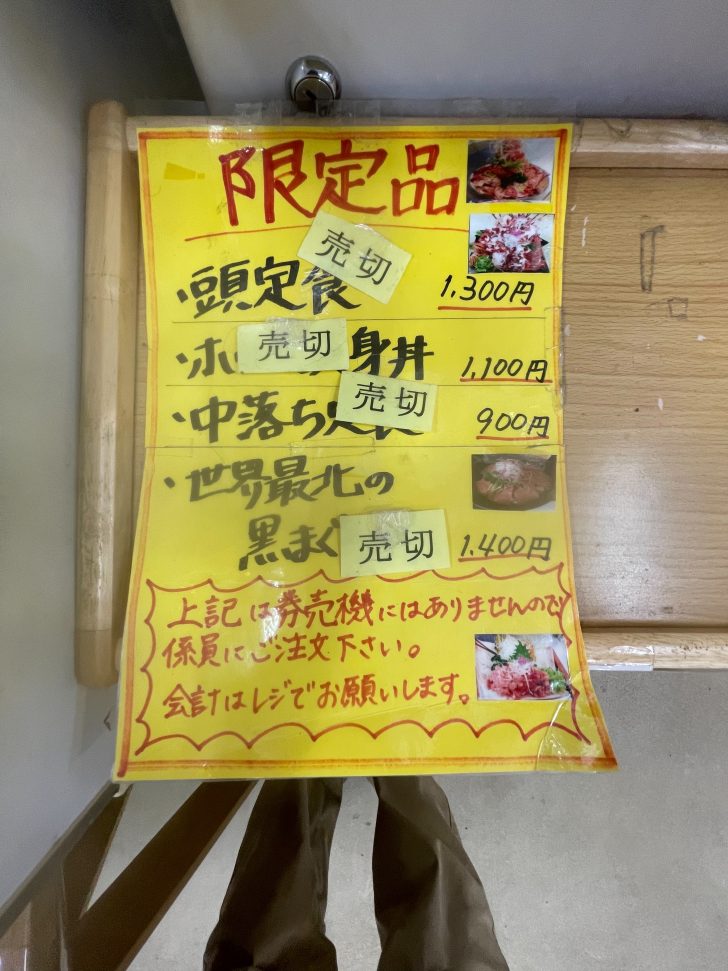 限定品
売切
・頭定食 1,300円
売切
・ホ 身丼 1,100円
売切
・中落ち定食 900円
・世界最北の
黒まぐ 売切 1,400円
上記は券売機にはありませんので
係員にご注文下さい。
会計はレジでお願いします。